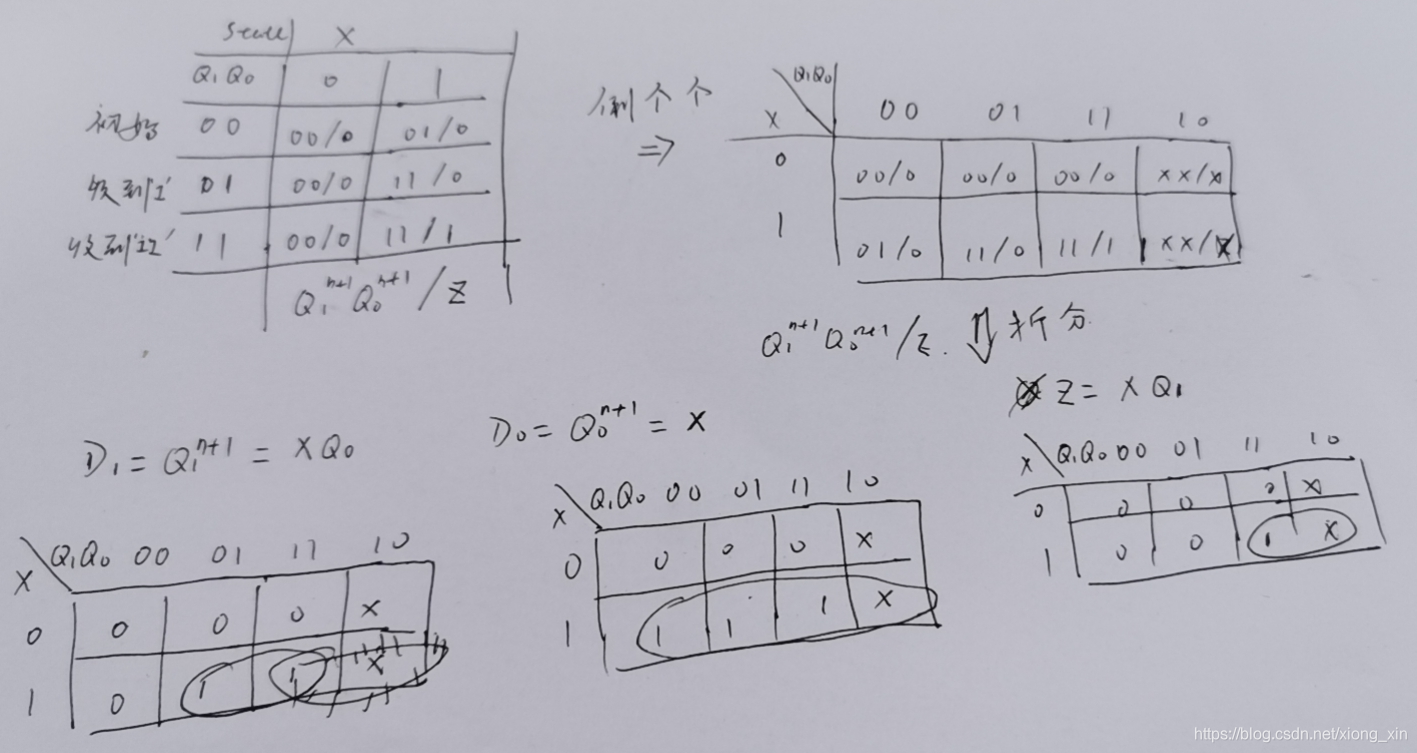 State X
Q₁Q₀ 0 1
初始 00 00/0 01/0
收到'1' 01 00/0 11/0
收到'11' 11 00/0 11/1
Q₁ⁿ⁺¹Q₀ⁿ⁺¹/Z
倒个个
⇒
X Q₁Q₀ 00 01 11 10
0 00/0 00/0 00/0 xx/x
1 01/0 11/0 11/1 xx/x
Q₁ⁿ⁺¹Q₀ⁿ⁺¹/Z. ⇓ 拆分
Z = XQ₁
X Q₁Q₀ 00 01 11 10
0 0 0 0 X
1 0 0 1 X
D₀ = Q₀ⁿ⁺¹ = X
X Q₁Q₀ 00 01 11 10
0 0 0 0 X
1 1 1 1 X
D₁ = Q₁ⁿ⁺¹ = XQ₀
X Q₁Q₀ 00 01 11 10
0 0 0 0 X
1 0 1 1 X
https://blog.csdn.net/xiong_xin